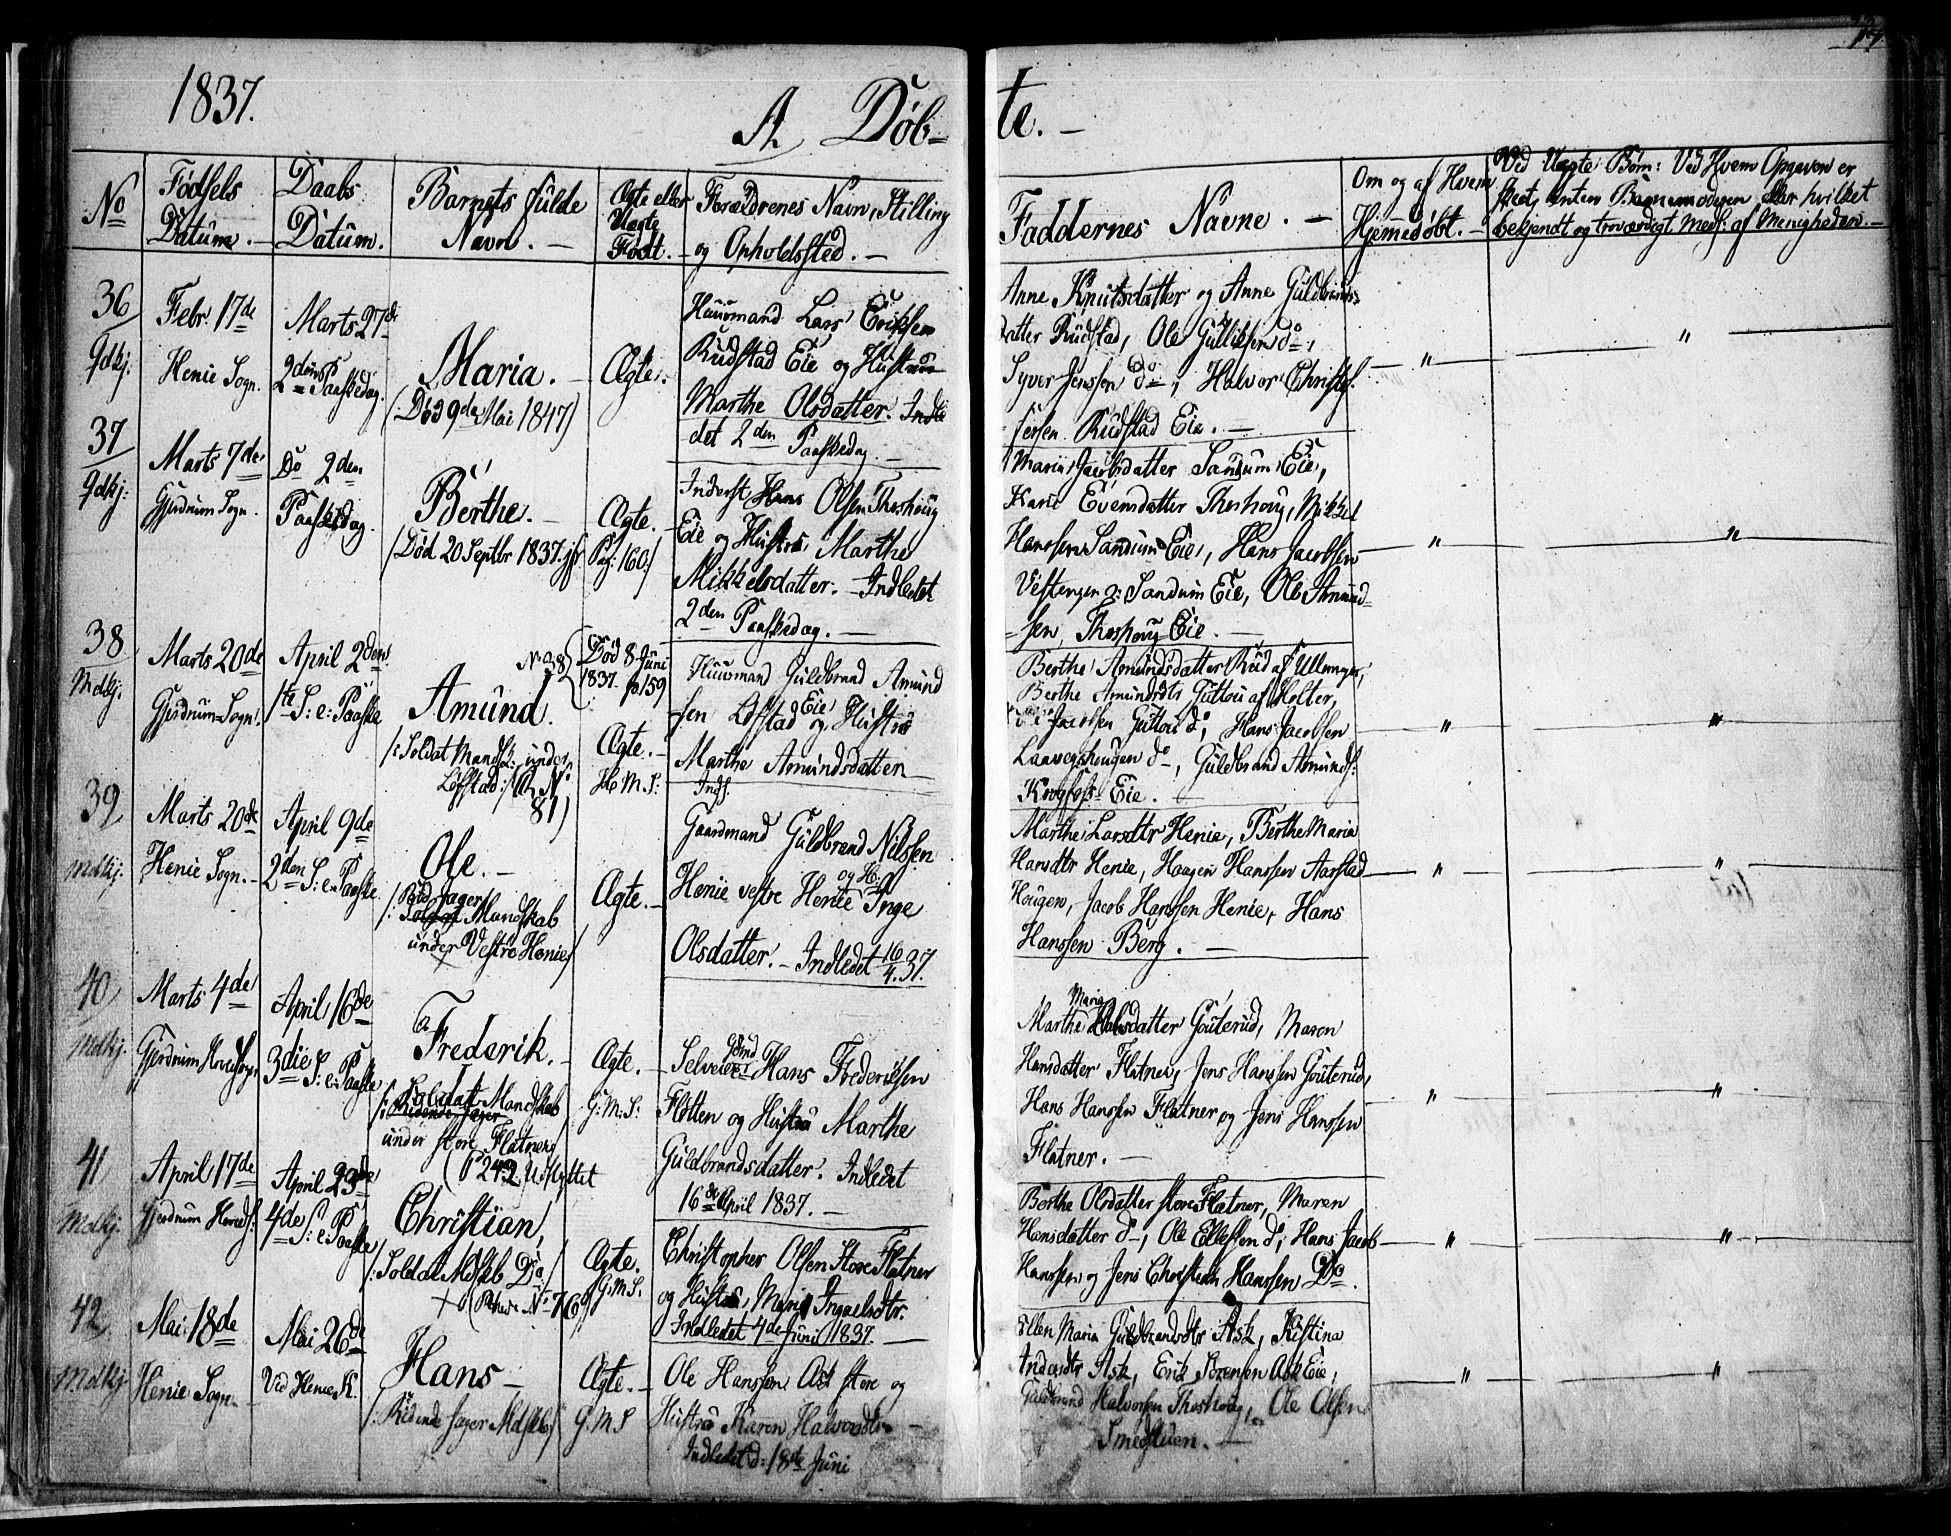 1837.
A. Döb-
te. -
No
Födsels
Datum. -
Daabs
Datum.
Barnets fulde
Navn. -
Ægte eller
Uægte
Födt. -
Forældrenes Navn, Stilling
og Opholdssted. -
Faddernes Navne. -
Om og af Hvem
Hjemedöbt. -
Ved Uægte Börn: Ved Hvem Opgaven er
skeet, enten Barnemoderen eller hvilket
bekjendt og troværdigt Meds: af Menigheden. -
36
Qdkj.
Febr. 17de
Henie Sogn.
Marts 27de
2den Paaskedag.
Maria. -
(Död 9de Mai 1847)
Ægte.
Huusmand Lars Eriksen
Rudstad Eie og Hustrue
Marthe Olsdatter. Indle
det 2den Paaskedag. -
Anne Knutsdatter og Anne Guldbrands
datter Rudstad, Ole Gulliksen do,
Syver Jenssen do, Halvor Christof
fersen Rudstad Eie. -
37
Qdkj:
Marts 7de
Gjerdrum Sogn.
Do 2den
Paaskedag.
Berthe. -
/Död 20 Septbr 1837. jfr Pag: 160/
Ægte.
Inderst Hans Olsen Thoshoug
Eie og Hustrue Marthe
Mikkelsdatter. - Indledet
2den Paaskedag. -
Maria Jacobsdatter Sandum Eie,
Karie Evensdatter Thoshoug, Mikkel
Hanssen Sandum Eie, Hans Jacobsen
Vestengen Sandum Eie, Ole Amund-
-sen, Thoshoug Eie. -
38
Mdkj.
Marts 20de
Gjerdrum Sogn.
April 2den
1ste S: e: Paaske
No 38 {Död 8 Juni
1837. p. 159
Amund.
/: Soldat Mandsk: under
Löfstad :/
81)
Ægte. -
H. M. S:
Huusmand Guldbrand Amund
sen Löfstad Eie og Hustrue
Marthe Amundsdatter
Inds.
Berthe Amundsdatter Rud af Ullensager,
Berthe Amundsdtr Guttou af Holter,
Jacobsen Guttou do, Hans Jacobsen
Laavershougen do, Guldbrand Amunds:
Krogfoss Eie. -
39
Mdkj.
Marts 20de
Henie Sogn. -
April 9de
2den S: e: Paaske
Ole. -
Rid. Jager
/: Soldat Mandskab
under Vestre Henie/
Ægte. -
Gaardmand Guldbrand Nilssen
Henie vestre Henie og H. Inge
Olsdatter. - Indledet 16/4. 37.
Marthe Larsdtr Henie, Berthe Maria
Hansdtr Henie, Haagen Hanssen Aarstad
Hougen, Jacob Hanssen Henie, Hans
Hanssen Berg. -
40
Mdkj.
Marts 4de
Gjerdrum Hovedsogn
April 16de
3die S: e: Paaske
Frederik. -
Soldat Mandskab
/: Ridende Jager
under store Flatner/
(P 242 Udflyttet
Ægte. -
G: M: S:
Selveier Gaard Hans Frederiksen
Flotten og Hustrue Marthe
Guldbrandsdatter. Indledet
16de April 1837. -
Marthe Maria Olsdatter Gouterud, Maren
Hansdatter Flatner, Jens Hanssen Gouterud,
Hans Hanssen Flatner og Jens Hanssen
Flatner. -
41
Mdkj.
April 17de
Gjerdrum Hoveds:
April 23de
4de S: e: Paaske
Christian,
/: Soldat Mdskb Do/
Ægte.
G: M: S:
Christopher Olsen Store Flatner
og Hustrue, Maria Ingvelsdtr.
Indledet 4de Juni 1837. -
Berthe Olsdatter store Flatner, Maren
Hansdatter do, Ole Ellefsen do, Hans Jacob
Hanssen og Jens Christian Hanssen Do.
42
Mdkj
Mai 18de
Henie Sogn
Mai 26de
Ved Henie K.
Hans -
/: Ridende Jager Mdskb/
Ægte. -
G: M. S
Ole Hanssen Ask store og
Hustrue Karen Halvorsdtr
Indledet d: 18de Juni
Ellen Maria Guldbrandsdtr Ask, Kistina
Andersdtr Ask, Erik Sörensen Ask Eie,
Guldbrand Halvorsen Thoshoug, Ole Olsen
Smedstuen. -